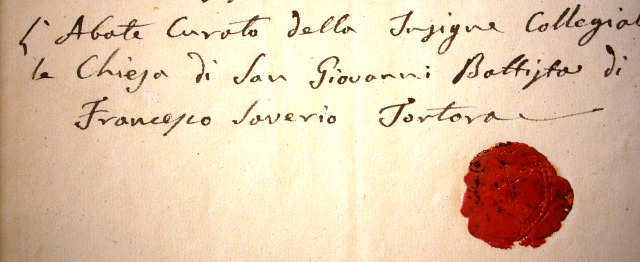 L'Abate Curato della Insigne Collegial
le Chiesa di San Giovanni Battista di
Francesco Saverio Tortora